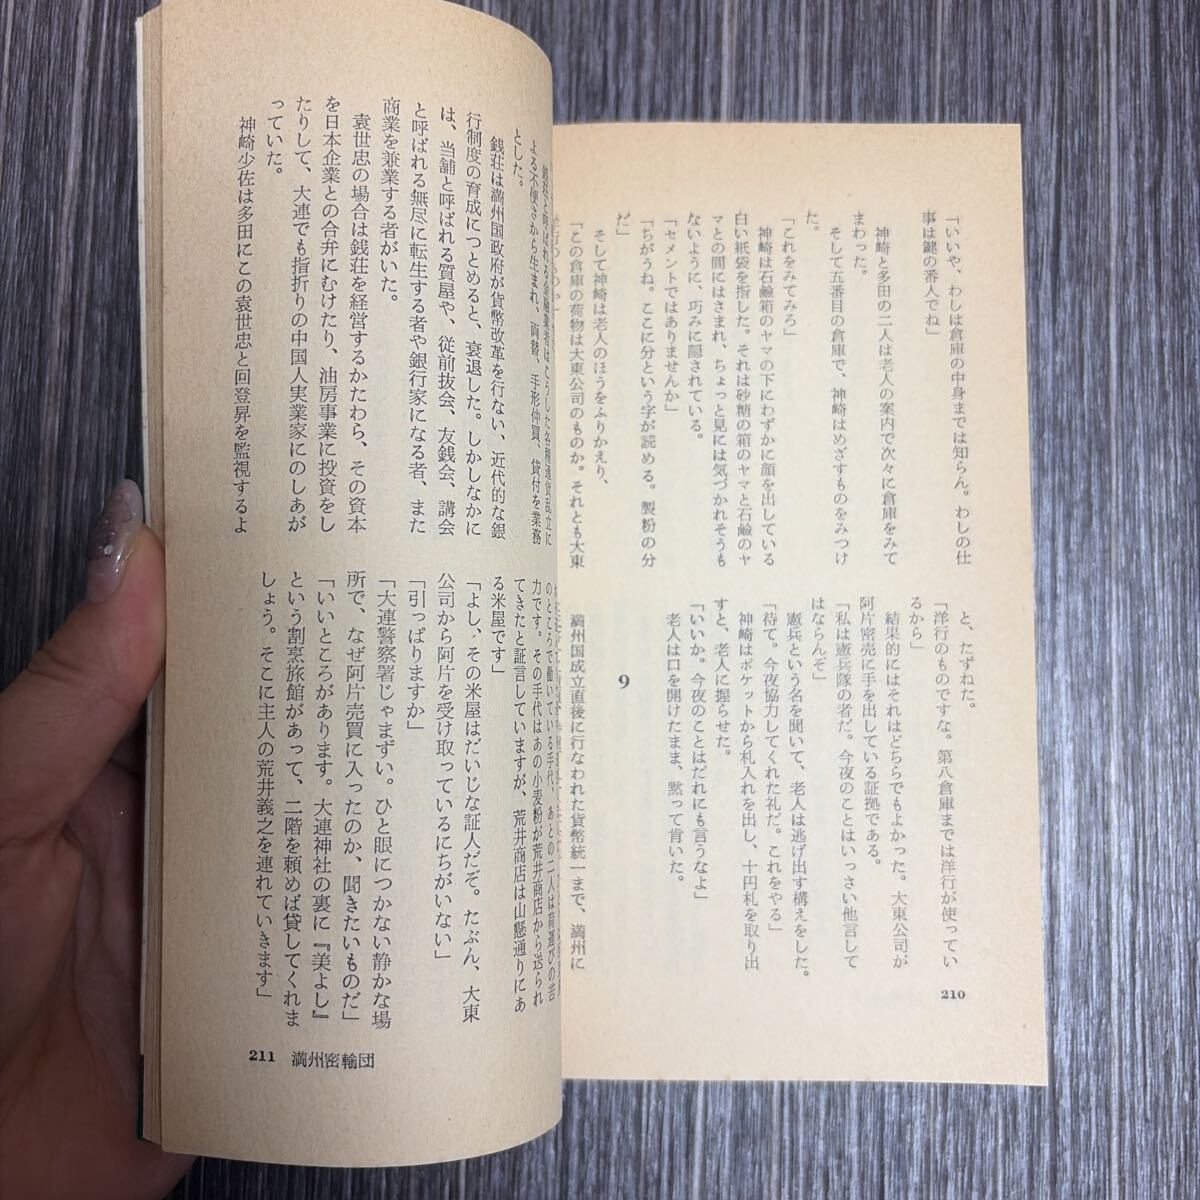 「いいや、わしは倉庫の中身までは知らん。わしの仕
事は鍵の番人でね」
神崎と多田の二人は老人の案内で次々に倉庫をみて
まわった。
そして五番目の倉庫で、神崎はめざすものをみつけ
た。
「これをみてみろ」
神崎は石鹸箱のヤマの下にわずかに顔を出している
白い紙袋を指した。それは砂糖の箱のヤマと石鹸のヤ
マとの間にはさまれ、ちょっと見には気づかれそうも
ないように、巧みに隠されている。
「セメントではありませんか」
「ちがうね。ここに分という字が読める。製粉の分
だ」
そして神崎は老人のほうをふりかえり、
「この倉庫の荷物は大東公司のものか。それとも大東
と、たずねた。
「洋行のものですな。第八倉庫までは洋行が使ってい
るから」
結果的にはそれはどちらでもよかった。大東公司が
阿片密売に手を出している証拠である。
「私は憲兵隊の者だ。今夜のことはいっさい他言して
はならんぞ」
憲兵という名を聞いて、老人は逃げ出す構えをした。
「待て。今夜協力してくれた礼だ。これをやる」
神崎はポケットから札入れを出し、十円札を取り出
すと、老人に握らせた。
「いいか。今夜のことはだれにも言うなよ」
老人は口を開けたまま、黙って肯いた。
9
満州国成立直後に行なわれた貨幣統一まで、満州に
210
銭荘と呼ばれる金融業者はこうした各種通貨乱立に
よる不便さから生まれ、両替、手形仲買、貸付を業務
とした。
銭荘は満州国政府が貨幣改革を行ない、近代的な銀
行制度の育成につとめると、衰退した。しかしなかに
は、当舗と呼ばれる質屋や、従前抜会、友銭会、講会
と呼ばれる無尽に転生する者や銀行家になる者、また
商業を兼業する者がいた。
袁世忠の場合は銭荘を経営するかたわら、その資本
を日本企業との合弁にむけたり、油房事業に投資をし
たりして、大連でも指折りの中国人実業家にのしあが
っていた。
神崎少佐は多田にこの袁世忠と回登昇を監視するよ
のところで働いている手代、あとの二人は荷運びの苦
力です。その手代はあの小麦粉が荒井商店から送られ
てきたと証言していますが、荒井商店は山懸通りにあ
る米屋です」
「よし、その米屋はだいじな証人だぞ。たぶん、大東
公司から阿片を受け取っているにちがいない」
「引っぱりますか」
「大連警察署じゃまずい。ひと眼につかない静かな場
所で、なぜ阿片売買に入ったのか、聞きたいものだ」
「いいところがあります。大連神社の裏に『美よし』
という割烹旅館があって、二階を頼めば貸してくれま
しょう。そこに主人の荒井義之を連れていきます」
211 満州密輸団